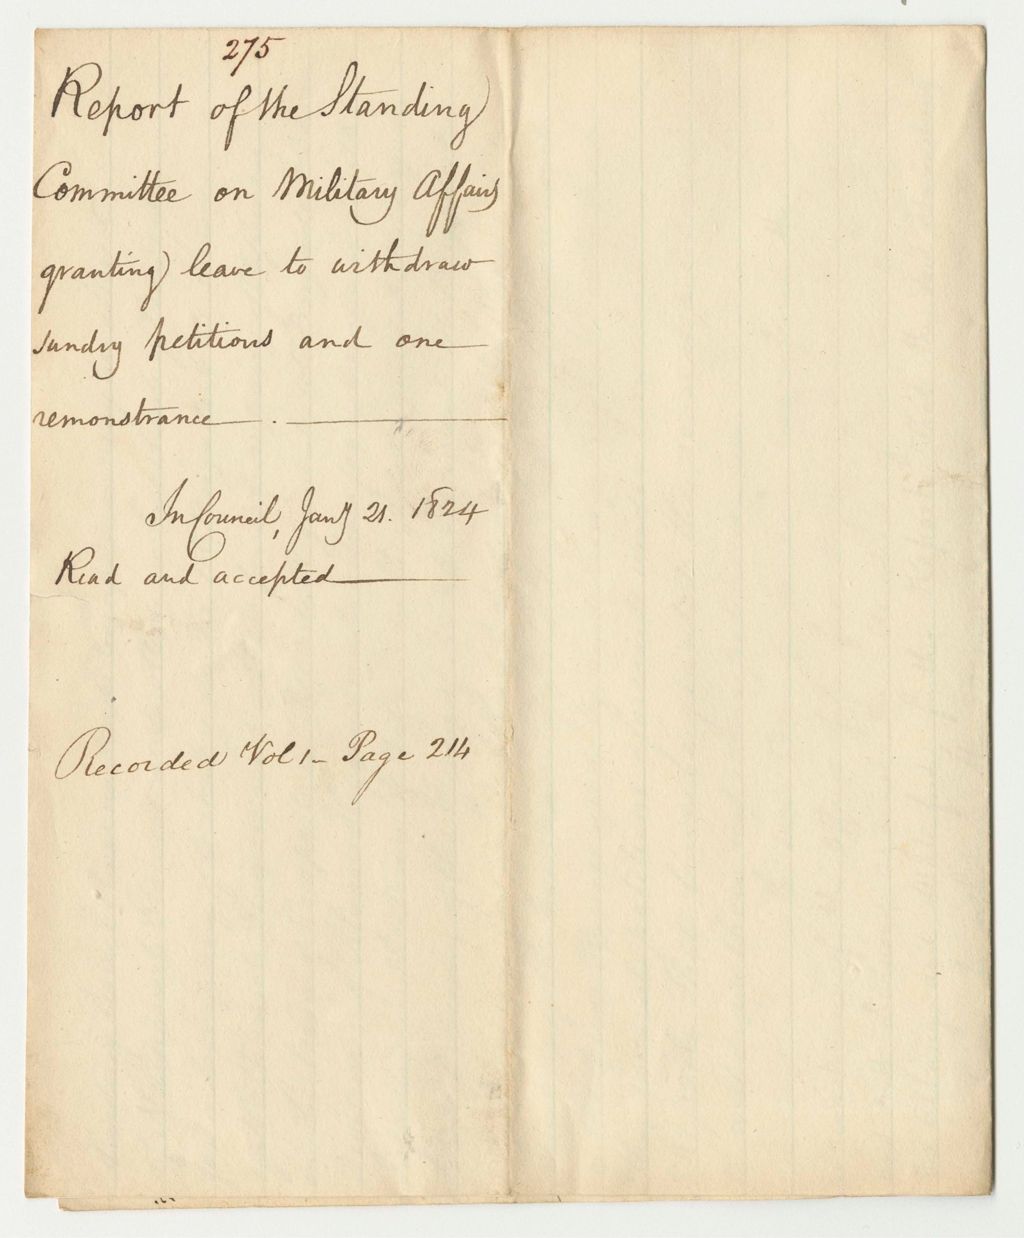 275
Report of the Standing
Committee on Military Affairs
granting leave to withdraw
sundry petitions and one
remonstrance.
In Council, Jany 21. 1824
Read and accepted
Recorded Vol 1- Page 214